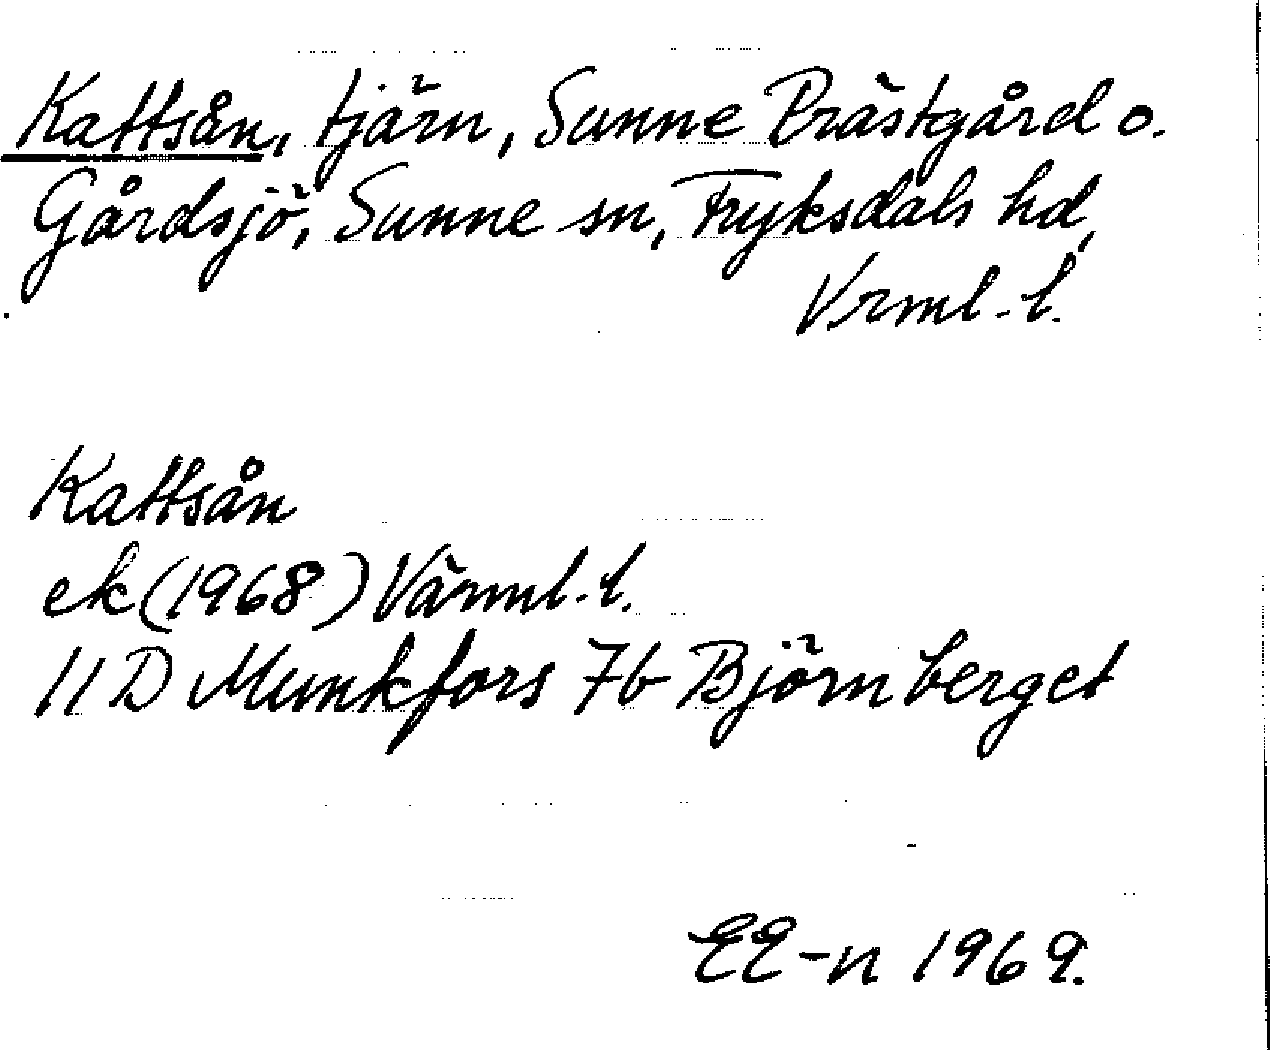 Kattsån, tjärn, Sunne Prästgård o.
Gårdsjö, Sunne sn, Fryksdals hd,
Vrml. l.
Kattsån
ek (1968) Värml. l.
11 D Munkfors 7b Björnberget
EE-n 1969.